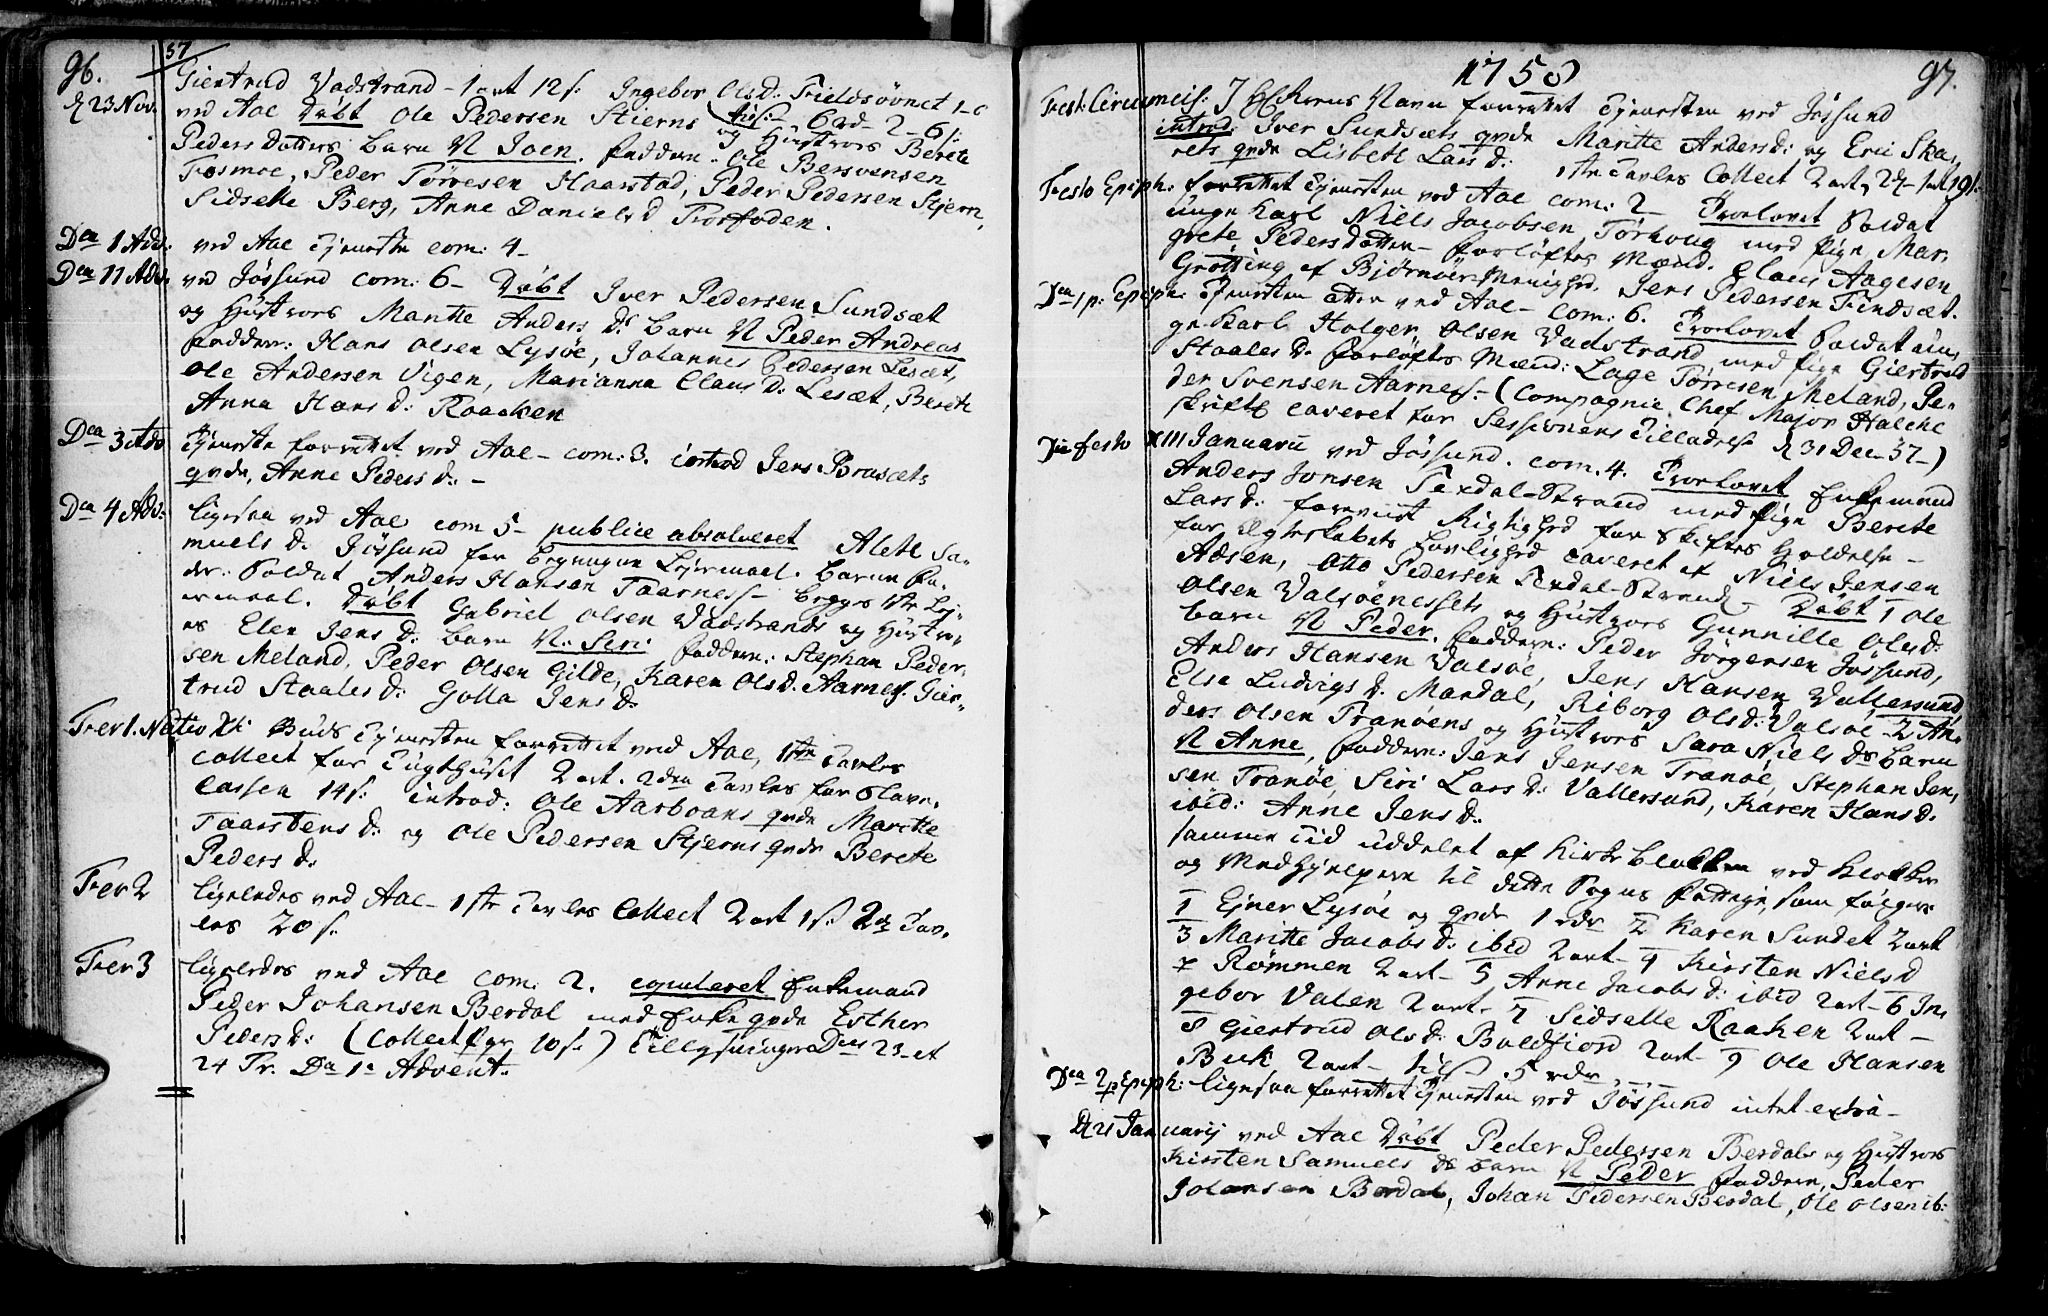 96.
57
Giertrud Vadstrand - 1 ort 12 s: Ingebor Olsd. Fieldsøûnet 1-6
d 23 Nov.
ved Aae Døbt Ole Pedersen Stierns og Hustrves Berete
6 rd - 2 - 6 s:
Peders Datters barn N Joen. faddere - Ole Bersvensen
Fosmoe, Peder Torresen Haarstad, Peder Pedersen Stjern,
Sidselle Berg, Anne Daniels d Torfoden.
Dca 1 Adv: ved Aae Tjeneste com: 4 -
Dca 11 Adv. ved Jøssund com: 6 - Døbt Iver Pedersen Sundsæt
og Hustroes Maritte Anders d: barn N Peder Andreas
faddere: Hans Olsen Lysøe, Johannes Pedersen Lesæt,
Ole Andersen Vigen, Marianna Claus d: Lesæt, Berete
Anna Hans d: Raacken
Dca 3 Adv Tjeneste forrettet ved Aae - com: 3. introd Jens Brasæts
qvde, Anne Peders d: -
Dca 4 Adv: ligesaa ved Aae com 5 - publice absolveret Alete Sa-
muels d. Jøssund for begangen Lejermaal. barne fa-
der: Soldat Anders Hansen Taarness - begges 1ste Lej-
ermaal. Døbt Gabriel Olsen Vadstrands og Hustro-
es Elen Jens d: barn N. Siri faddere: Stephan Peder-
sen Meland, Peder Olsen Gilde, Karen Olsd. Aarness. Gier-
trud Staales d: Golla Jens d.
Fer 1. Nativ Xti Guds Tjenesten forrettet ved Aae, 1ste Tavles
Collect for Tugthuset 2 ort. 2den Tavles for Slave-
Cassen 14 s: introd: Ole Aarboans qvde Maritte
Taarstens d. og Ole Pedersen Stjerns qvde Berete
Peders d.
Fer 2 ligeledes ved Aae - 1ste Tavles Collect 2 ort 1 s. 2d Tav-
les 20 s.
Fer 3 ligeledes ved Aae com: 2. copuleret Enkemand
Peder Johansen Berdal med Enke qvde Esther
Peders d: (Collect 10 s.) Tillysninger Dnis 23 et
24 Tr. Da 1. Advent.
1758
97.
Fest: Circumcis: J HErrens Navn forrettet Tjenesten ved Jøssund
introd: Iver Sundsæts qvde Maritte Anders d: og Eric Ska-
rets qvde Lisbeth Lars d: 1ste Tavles Collect 2 ort, 2d - 1 ort 19 s.
Festo Epiph: forrettet Tjenesten ved Aae com: 2 - Trolovet Soldat
unge Karl Niels Jacobsen Tørhoug med Pige Mar-
grete Peders datter - forløftes Mænd. Claus Aagesen
Grøtting af Bjørnøer Menighed. Jens Pedersen Findsæt.
Dca 1 p: Epiph: Tjenesten atter ved Aae - com: 6. Trolovet Soldat un-
ge Karl Holger Olsen Vadstrand med Pige Giertrud
Staales d. forløftes Mænd: Lage Tørresen Meland, Pe-
der Svensen Aarness - (Compagnie Chef Major Halche
skriftl caveret for Sessionens Tilladelse d 31 Dec. 57 -)
Die festo XIII Januarii ved Jøssund. com. 4. Trolovet Enkemand
Anders Jonsen Texdal-Strand med Pige Berete
Lars d. foreviist Rigtighed for Skiftes Holdelse -
for Ægteskabets Lovlighed caveret af Niels Jensen
Adsen, Otto Pedersen Texdal-Strand. Døbt 1 Ole
Olsen Valsøenessets og Hustroes Gunnille Olsd:
barn N Peder. faddere: Peder Jørgensen Jøssund,
Anders Hansen Valsøe, Jens Hansen Vallersund
Else Ludvigs d. Mandal, Riborg Olsd: Valsøe - 2 An-
ders Olsen Tranøens og Hustroes Sara Niels ds barn
N Anne, faddere: Jens Jensen Tranøe, Stephan Jen-
sen Tranøe, Siri Lars d: Vallersund, Karen Hans d.
ibid: Anne Jens d.
samme Tid uddelet af Kirke blokken ved Klokker
og Medhjelpere til dette Sogns fattige, som følger
1 Ejner Lysøe og qvde 1 rdr 2 Karen Sundet 2 ort
3 Maritte Jacobs d: ibid 2 ort - 4 Kirsten Niels d
Rømmen 2 ort - 5 Anne Jacobs d: ibid 2 ort - 6 In-
gebor Valen 2 ort - 7 Sidselle Raaken 2 ort -
8 Giertrud Ols d. Boldfiord 2 ort - 9 Ole Hansen
Buk 2 ort - til 5 rdr
Dca 2 p Epiph: ligesaa forrettet Tjenesten ved Jøssund intet extra -
d 21 Januarij ved Aae Døbt Peder Pedersen Berdals og Hustroes
Kirsten Samuels ds barn N Peder faddere, Peder
Johansen Berdal, Johan Pedersen Berdal, Ole Olsen ib: